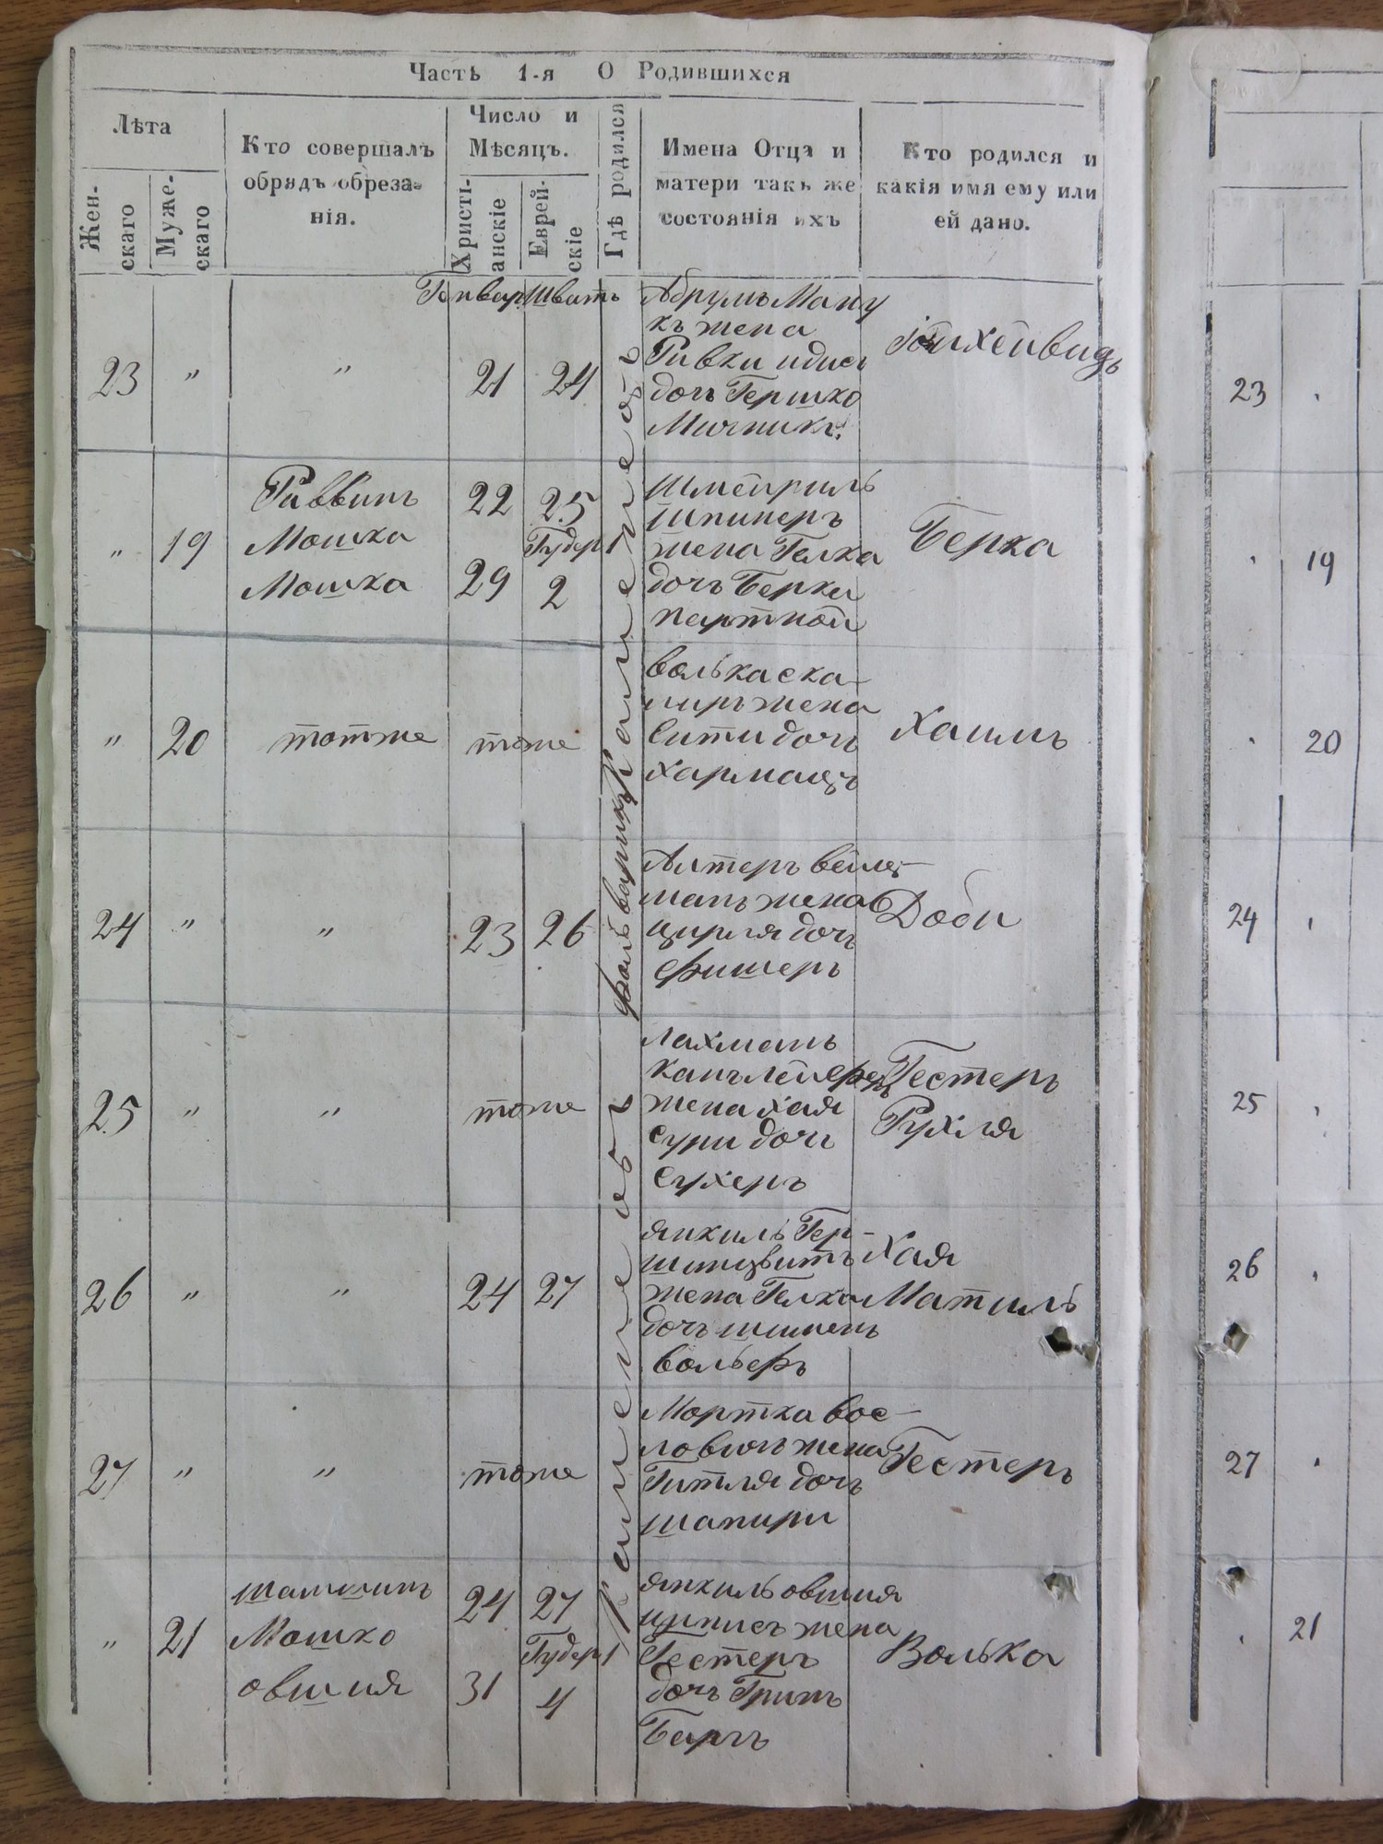 Часть 1-я О Родившихся
Лѣта
Жен-
скаго
Муже-
скаго
Кто совершалъ
обрядъ обреза-
нія.
Число и
Мѣсяцъ.
Христі-
анскіе
Еврей-
скіе
Гдѣ родился
Имена Отца и
матери такъ же
состоянія ихъ
Кто родился и
какія имя ему или
ей дано.
Генвар Шватъ
23 " " 21 24
Абрумъ Ману
къ жена
Ривки идись
дочь Гершко
Мичникъ
" 19
Раввинъ
Мошка
Мошка
22 25
Гудер
29 2
Шмейриль
Шпинеръ
жена Гелка
дочь Берки
партной
Берка
" 20 тотже тоже
волька ска-
жена
Сити дочь
хармацъ
Хаимъ
24 " " 23 26
Алтеръ вейц-
манъ жена
цирля дочь
фишеръ
Доби
25 " " тоже
лахманъ
жена хая
сури дочь
сухеръ
Гестеръ
Рухля
26 " " 24 27
янкиль Гер-
шинзвитъ
жена Гелка
дочь
вольфъ
Хая
Матиль
27 " " тоже
Мортка вос-
ловичъ жена
Гитля дочь
шапири
Гестеръ
" 21
Мошко
овшия
24 27
Гудер
31 4
янкиль овшия
жена
Гестеръ
дочь Грин
Бергъ
Волька
Каменецъ
фольварикъ Каменецъ
23
19
20
24
25
26
27
21